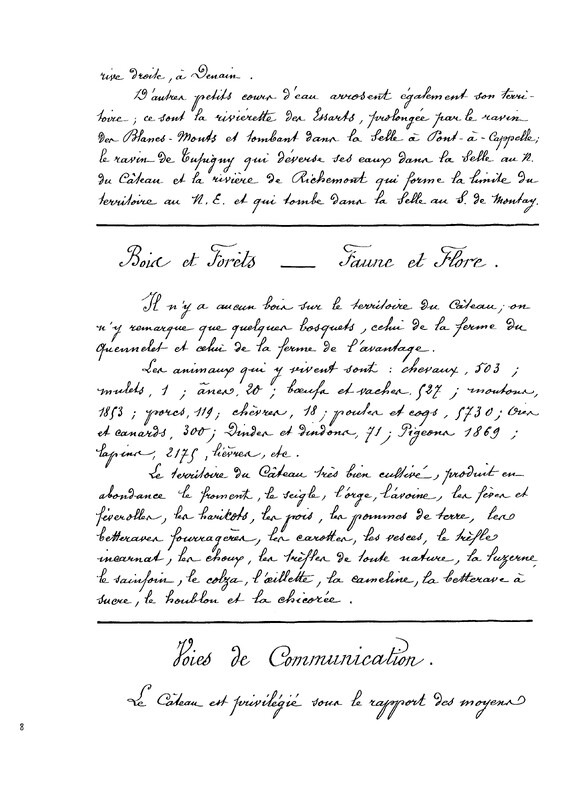 rive droite, à Denain.
D'autres petits cours d'eau arrosent également son terri-
toire ; ce sont la riviérette des Essarts, prolongée par le ravin
des Blancs-Monts et tombant dans la Selle à Pont-à-Cappelle;
le ravin de Tupigny qui déverse ses eaux dans la Selle au N.
du Câteau et la rivière de Richemont qui forme la limite du
territoire au N. E. et qui tombe dans la Selle au S. de Montay.
Bois et Forêts — Faune et Flore.
Il n'y a aucun bois sur le territoire du Câteau; on
n'y remarque que quelques bosquets, celui de la ferme du
Quennelet et celui de la ferme de l'avantage.
Les animaux qui y vivent sont : chevaux, 503 ;
mulets, 1 ; ânes, 20 ; bœufs et vaches, 527 ; moutons,
1853 ; porcs, 119; chèvres, 18 ; poules et coqs, 5730 ; Oies
et canards, 300; Dindes et dindons, 71 ; Pigeons 1869 ;
lapins, 2175, lièvres, etc.
Le territoire du Câteau très bien cultivé, produit en
abondance le froment, le seigle, l'orge, l'avoine, les fèves et
féverolles, les harikots, les pois, les pommes de terre, les
betteraves fourragères, les carottes, les vesces, le trèfle
incarnat, les choux, les trèfles de toute nature, la luzerne,
le sainfoin, le colza, l'œillette, la cameline, la betterave à
sucre, le houblon et la chicorée.
Voies de Communication.
Le Câteau est privilégié sous le rapport des moyens
8